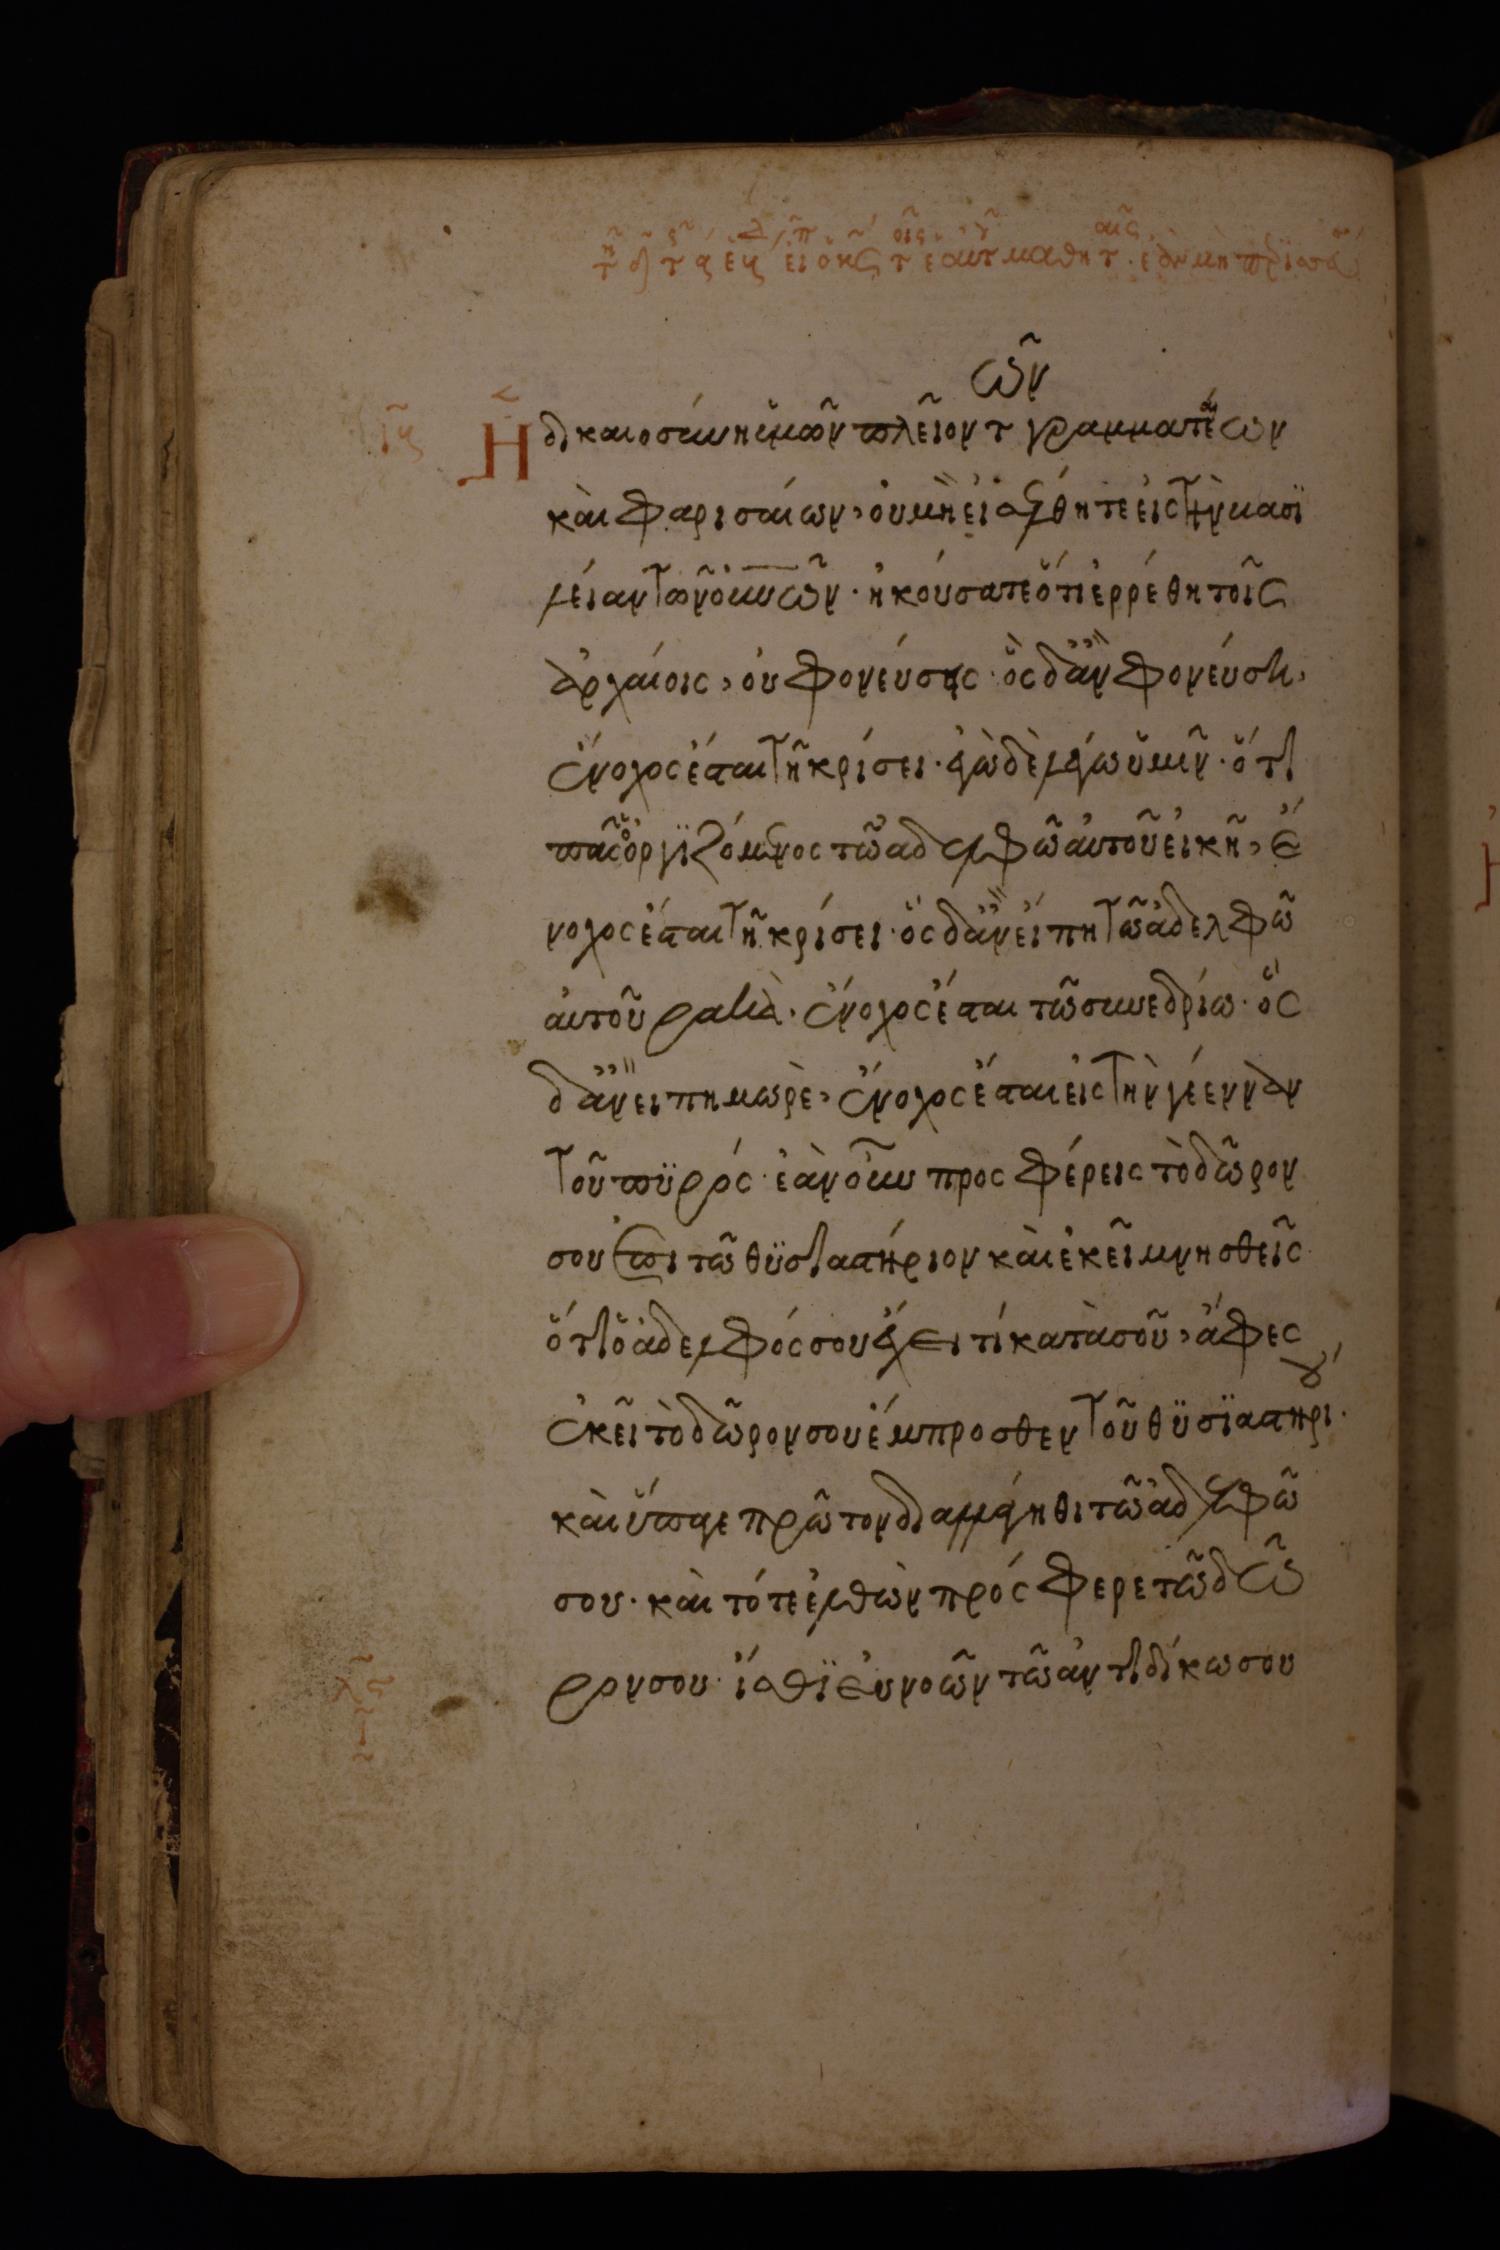 τῆ δ τ ς ἑ εἶπ ὁ κς τοῖς ἑαυτ μαθητ αῖς· ἐὰν μὴ περισσεύσῃ
Ἡ δικαιοσύνη ὑμῶν πλεῖον τῶν γραμματέων
καὶ φαρισαίων, οὐ μὴ εἰσέλθητε εἰς τὴν βασϊ
λείαν τῶν οὐνῶν· ἠκούσατε ὅτι ἐρρέθη τοῖς
ἀρχαίοις, οὐ φονεύσεις· ὃς δἂν φονεύση,
ἔνοχος ἔσται τῆ κρίσει· ἐγὼ δὲ λέγω ὑμῖν· ὅτι
πᾶς ὁ ὀργϊζόμενος τῶ αδελφῶ αὐτοῦ εἰκῆ, ἔ
νοχος ἔσται τῆ κρίσει· ὃς δἂν εἴπη τῶ ἀδελφῶ
αὐτοῦ ρακὰ· ἔνοχος ἔσται τῶ συνεδρίω· ὃς
δἂν ειπη μωρὲ, ἔνοχος ἔσται εἰς τὴν γέενναν
τοῦ πϋρός· ἐὰν οὖν προσφέρεις τὸ δῶρον
σου ἐπι τῶ θϋσιαστήριον καὶ ἐκεῖ μνησθεῖς
ὅτι ὁ ἀδελφός σου ἔχει τί κατὰ σοῦ, ἄφες
ἐκεῖ τὸ δῶρον σου ἔμπροσθεν τοῦ θϋσϊαστηρίου·
καὶ ὕπαγε πρῶτον διαλλάγηθι τῶ ἀδελφῶ
σου· καὶ τότε ἐλθὼν πρόσφερε τῶ δῶ
ρον σου· ἴσθϊ εὐνοῶν τῶ ἀντιδίκω σου